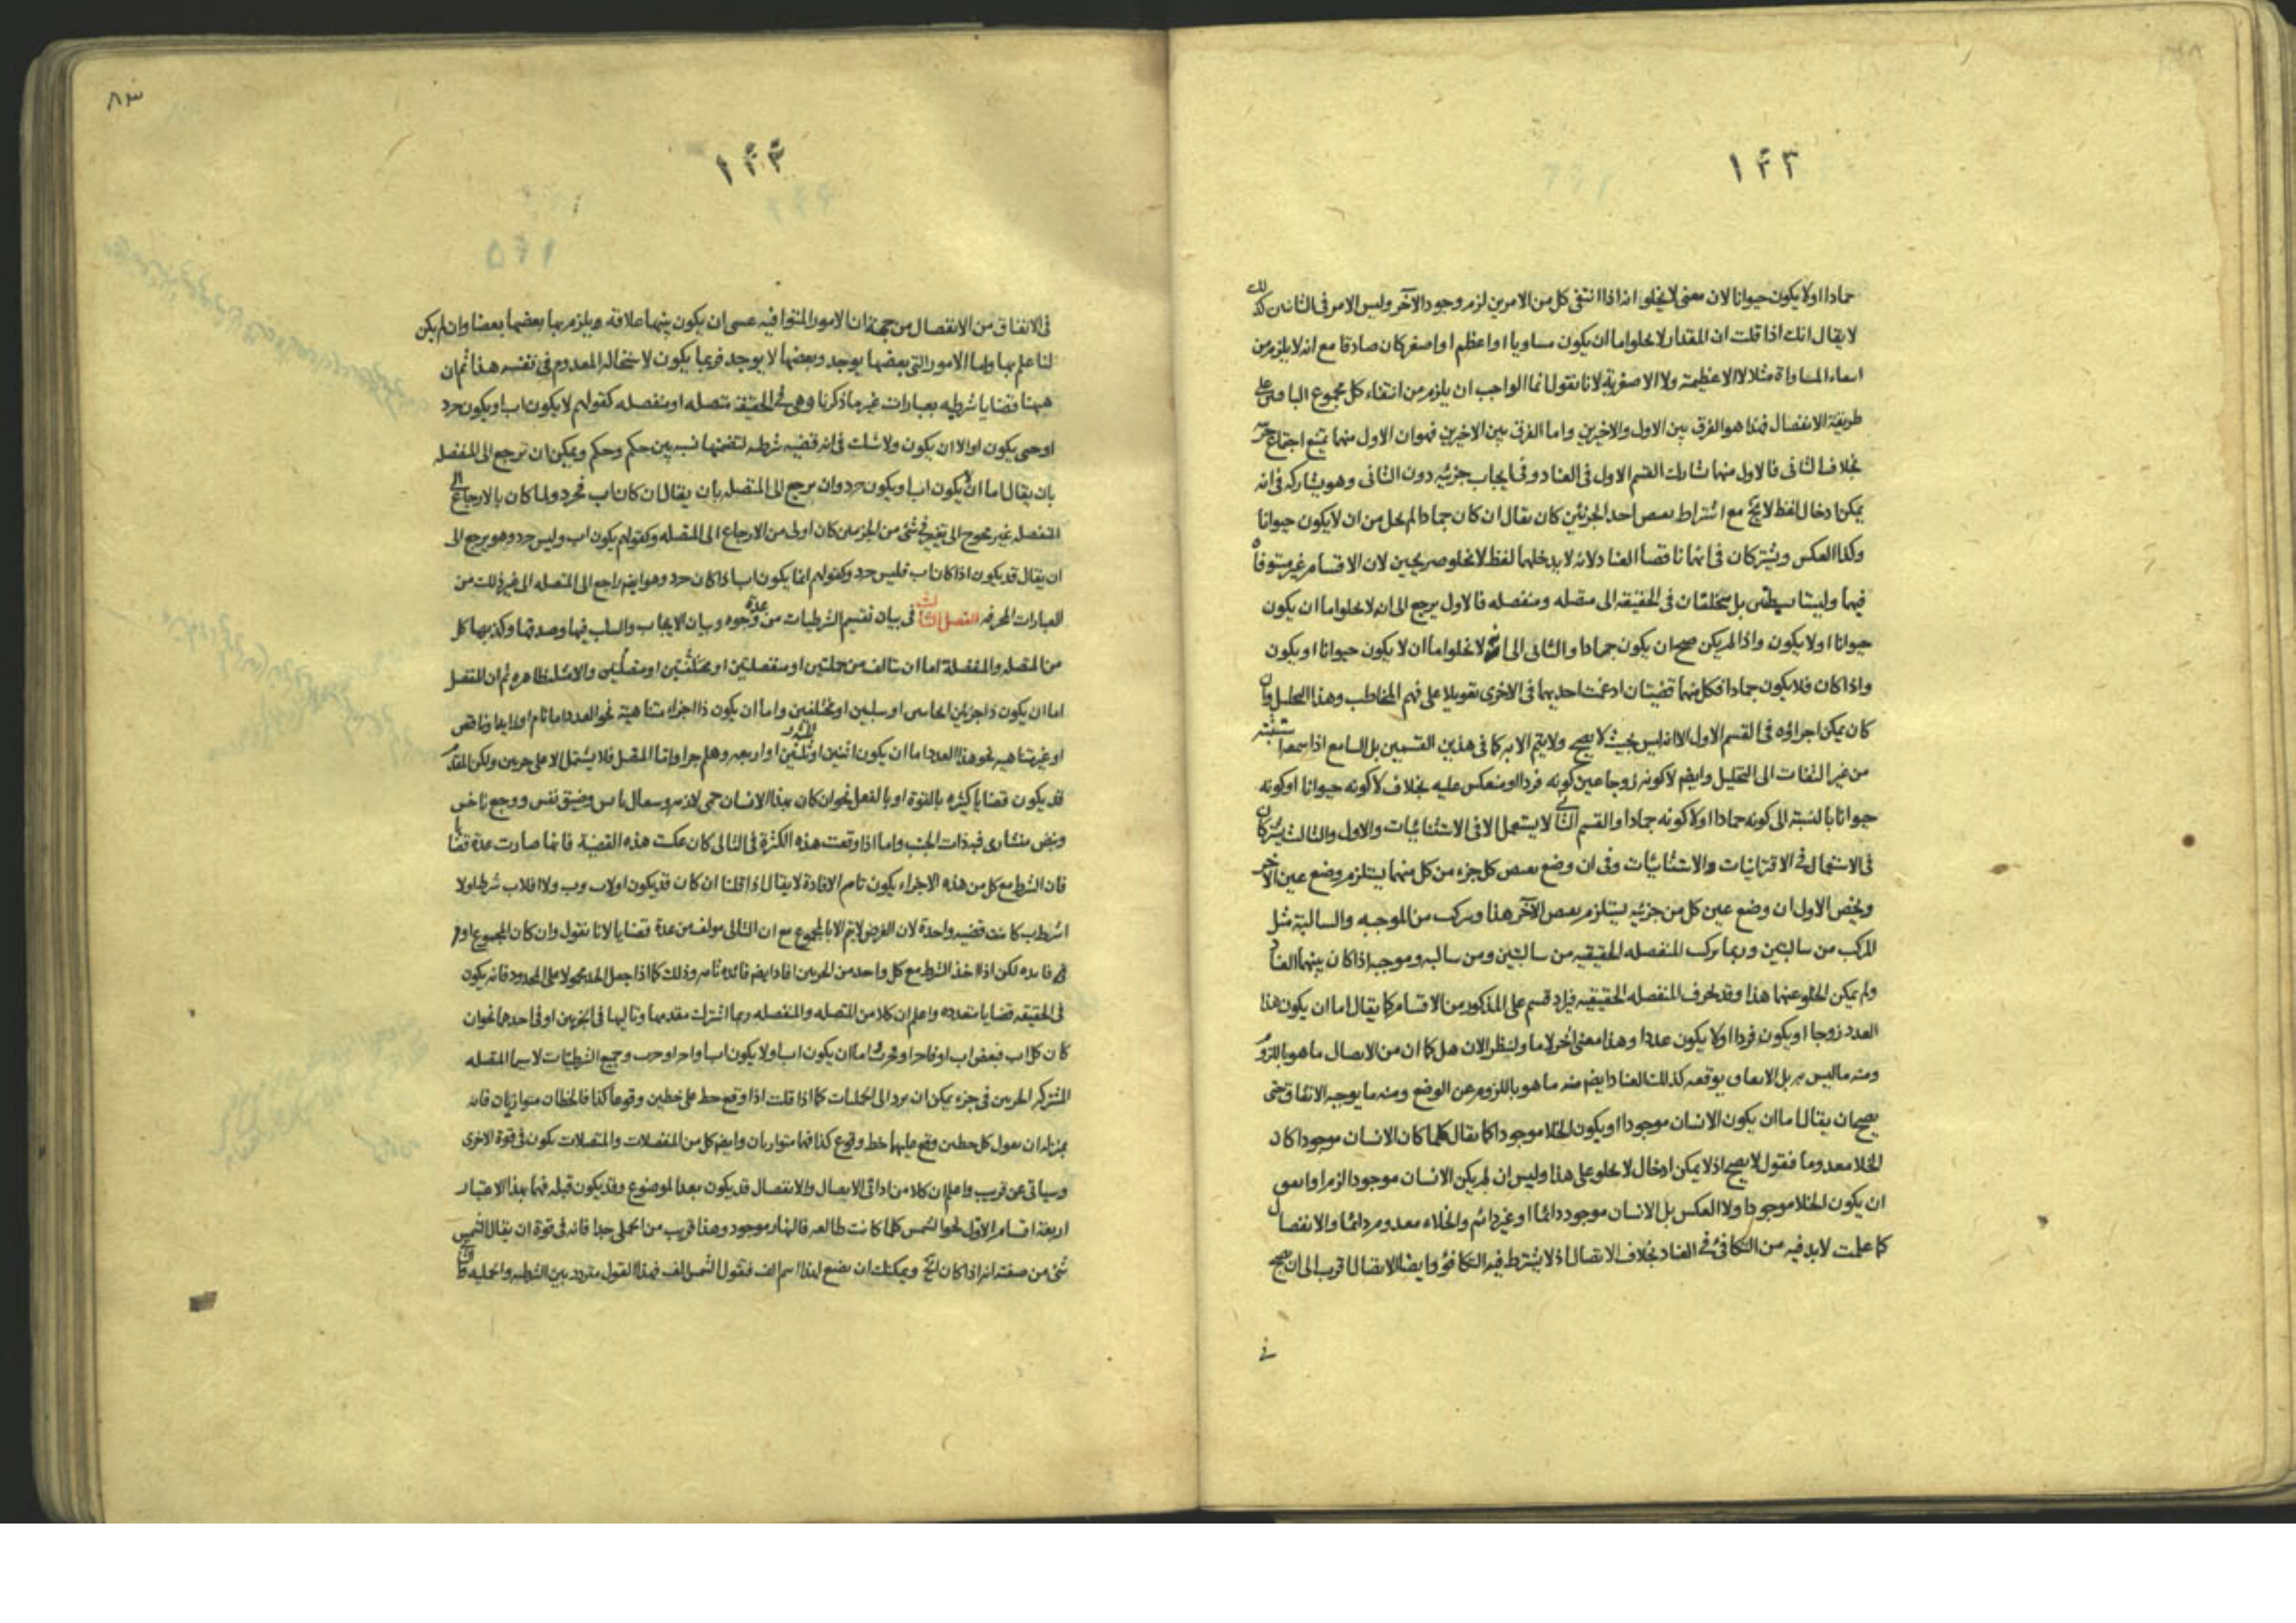 ١٤٣
جمادا اولا يكون حيوانا لان معنى لا يخلو انه اذا انتفى كل من الامرين لزم وجود الآخر وليس الامر فى الثانى كذلك
لا يقال انك اذا قلت ان المقدار لا يخلو اما ان يكون مساويا او اعظم او اصغر كان صادقا مع انه لا يلزم من
المساواة مثلا لا الاعظمية ولا الاصغرية لانا نقول انما الواجب ان يلزم من انتفاء كل مجموع الباقين على
طريقة الانفصال فهذا هو الفرق بين الاول والاخيرين واما الفرق بين الاخيرين فهو ان الاول منهما يمتنع اجتماع
بخلاف الثانى فالاول منهما شارك القسم الاول فى العناد وفى ايجاب جزئيه دون الثانى وهو يشاركه فى انه
يمكن ادخال لفظ لا يخ مع اشتراط احد الجزئين كان يقال ان كان جمادا لم يخل من ان لا يكون حيوانا
وكذا العكس ويشتركان فى انهما ناقصا العناد لانه لا يدخلهما لفظ لا يخلو صريحين لان الاقسام غير مستوفاه
فيهما وليستا بل مختلفتان فى الحقيقه الى متصله ومنفصله فالاول يرجع الى انه لا يخلو اما ان يكون
حيوانا اولا يكون واذا لم يكن صح ان يكون جمادا والثانى الى انه لا يخلو اما ان لا يكون حيوانا او يكون
واذا كان فلا يكون جمادا فكل منهما قضيتان ادغمت احديهما فى الاخرى تعويلا على فهم المخاطب وهذا التحليل وان
كان يمكن اجراؤه فى القسم الاول الا انه ليس بحيث لا يصح ولا يتم الا به كما فى هذين القسمين بل السامع اذا سمعه
من غير التفات الى التحليل وايض لا كونه زوجا عين كونه فردا ومنعكس عليه بخلاف لا كونه حيوانا او كونه
حيوانا بالنسبة الى كونه جمادا اولا كونه جمادا والقسم الثانى لا يستعمل الا فى الاستثنائيات والاول والثالث يشتركان
فى الاستعمال فى الاقترانيات والاستثنائيات وفى ان وضع كل جزء من كل منهما يستلزم وضع عين الآخر
ويخص الاول ان وضع عين كل من جزئيه يستلزم الآخر هذا ويركب من الموجبه والسالبة مثل
المركب من سالبتين وربما يركب المنفصله الحقيقيه من سالبتين ومن سالبه وموجبه اذا كان بينهما العناد
ولم يمكن الخلو عنهما هذا وقد تحرف المنفصله الحقيقيه فيزاد قسم على المذكور من الاقسام كما يقال اما ان يكون هذا
العدد زوجا او يكون فردا اولا يكون عددا وهذا معنى اخر لاما ولننظر الان هل كما ان من الاتصال ما هو باللزوم
ومنه ما ليس به بل الاتفاق يوقعه كذلك العناد ايض منه ما هو باللزوم عن الوضع ومنه ما يوجبه الاتفاق حتى
يصح ان يقال اما ان يكون الانسان موجودا او يكون الخلا موجودا كما يقال كلما كان الانسان موجودا كان
الخلا معدوما فنقول لا يصح اذ لا يمكن ادخال لا يخلو على هذا وليس ان لم يكن الانسان موجودا لزم او اتفق
ان يكون الخلا موجودا ولا العكس بل الانسان موجود دائما او غير دائم والخلاء معدوم دائما والانفصال
كما علمت لابد فيه من التكافؤ فى العناد بخلاف الاتصال اذ لا يشترط فيه التكافؤ وايضا الاتصال اقرب الى ان يصح
فى
٨٣
١٤٤
١٤٥
فى الاتفاق من الانفصال من جهة ان الامور المتوافيه عسى ان يكون بينهما علاقه ويلزم بها بعضها بعضا وان لم يكن
لنا علم بها واما الامور التى بعضها يوجد وبعضها لا يوجد فربما يكون لاستحاله المعدوم فى نفسه هذا ثم ان
ههنا قضايا شرطيه بعبارات غير ما ذكرنا وهى فى الحقيقه متصله او منفصله كقولهم لا يكون اب او يكون حرد
او حتى يكون او الا ان يكون ولا شك فى انه قضيه شرطيه لتضمنها نسبه بين حكم وحكم ويمكن ان ترجع الى المنفصله
بان يقال اما ان لا يكون اب او يكون حرد وان يرجع الى المتصله بان يقال ان كان اب فحرد ولما كان بالارجاع الى
المنفصله غير محوج الى تغير فى شئ من الجزئين كان اولى من الارجاع الى المتصله وكقولهم يكون اب وليس حرد وهو يرجع الى
ان يقال قد يكون اذا كان اب فليس حرد وكقولهم انما يكون اب اذا كان حرد وهو ايض راجع الى المتصله الى غير ذلك من
العبارات المحرفه الفصل الثالث فى بيان تقسيم الشرطيات من عدة وجوه وبيان الايجاب والسلب فيها وصدقها وكذبها كل
من المتصله والمنفصلة اما ان يتالف من حمليتين او منفصلتين او مختلفتين او متصلتين والامثله ظاهره ثم ان المنفصل
اما ان يكون ذا جزئين ايجابيين او سلبيين او مختلفين واما ان يكون ذا اجزاء متناهية نحو العدد اما تام او زايد او ناقص
او غير متناهيه نحو هذا العدد اما ان يكون اثنين او ثلثين او اربعه وهلم جرا واما المتصل فلا يشتمل الا على جزئين ولكن المقدم
قد يكون قضايا كثيره بالقوة او بالفعل نحو ان كان بهذا الانسان حمى لازمه وسعال يابس وضيق نفس ووجع ناخس
ونبض منشارى فبه ذات الجنب واما اذا وقعت هذه الكثرة فى التالى كان عكست هذه القضية فانها صارت عدة قضايا
فان الشرط مع كل من هذه الاجزاء يكون تام الافادة لا يقال اذا قلنا ان كان قد يكون اولاب وب ولا افلاب شرطا ولا
كانت قضيه واحدة لان الغرض لا يتم الا بالمجموع مع ان التالى مولف من عدة قضايا لانا نقول وان كان المجموع اوفر
فايده لكن اذا اخذ الشرط مع كل واحد من الجزئين افاد ايض فائده تامه وذلك كما اذا جعل الحد محمولا على المحدود فانه يكون
فى الحقيقه قضايا متعدده واعلم ان كلا من المتصله والمنفصله ربما اشترك مقدمها وتاليها فى الجزئين او فى احدهما نحو ان
كان كل اب فبعض اب اما ان يكون اب او لا يكون اب وجميع الشرطيات لا سيما المتصله
المشتركه الجزئين فى جزء يمكن ان يرد الى الحمليات كما اذا قلت اذا وقع خط على خطين وقوعا كذا فالخطان متوازيان فانه
بمنزله ان نقول كل خطين وقع عليهما خط وقوع كذا فهما متوازيان وايض كل من المنفصلات والمتصلات يكون فى قوة الاخرى
وسياتى عن قريب واعلم ان كلا من اداتى الاتصال والانفصال قد يكون بعد الموضوع وقد يكون قبله فهما بهذا الاعتبار
اربعة اقسام الاول نحو الشمس كلما كانت طالعه فالنهار موجود وهذا قريب من الحملى جدا فانه فى قوة ان يقال الشمس
شئ من صفته انه اذا كان الخ ويمكنك ان تضع لهذا اسم الف فنقول الشمس الف فهذا القول متردد بين الشرطيه والحمليه